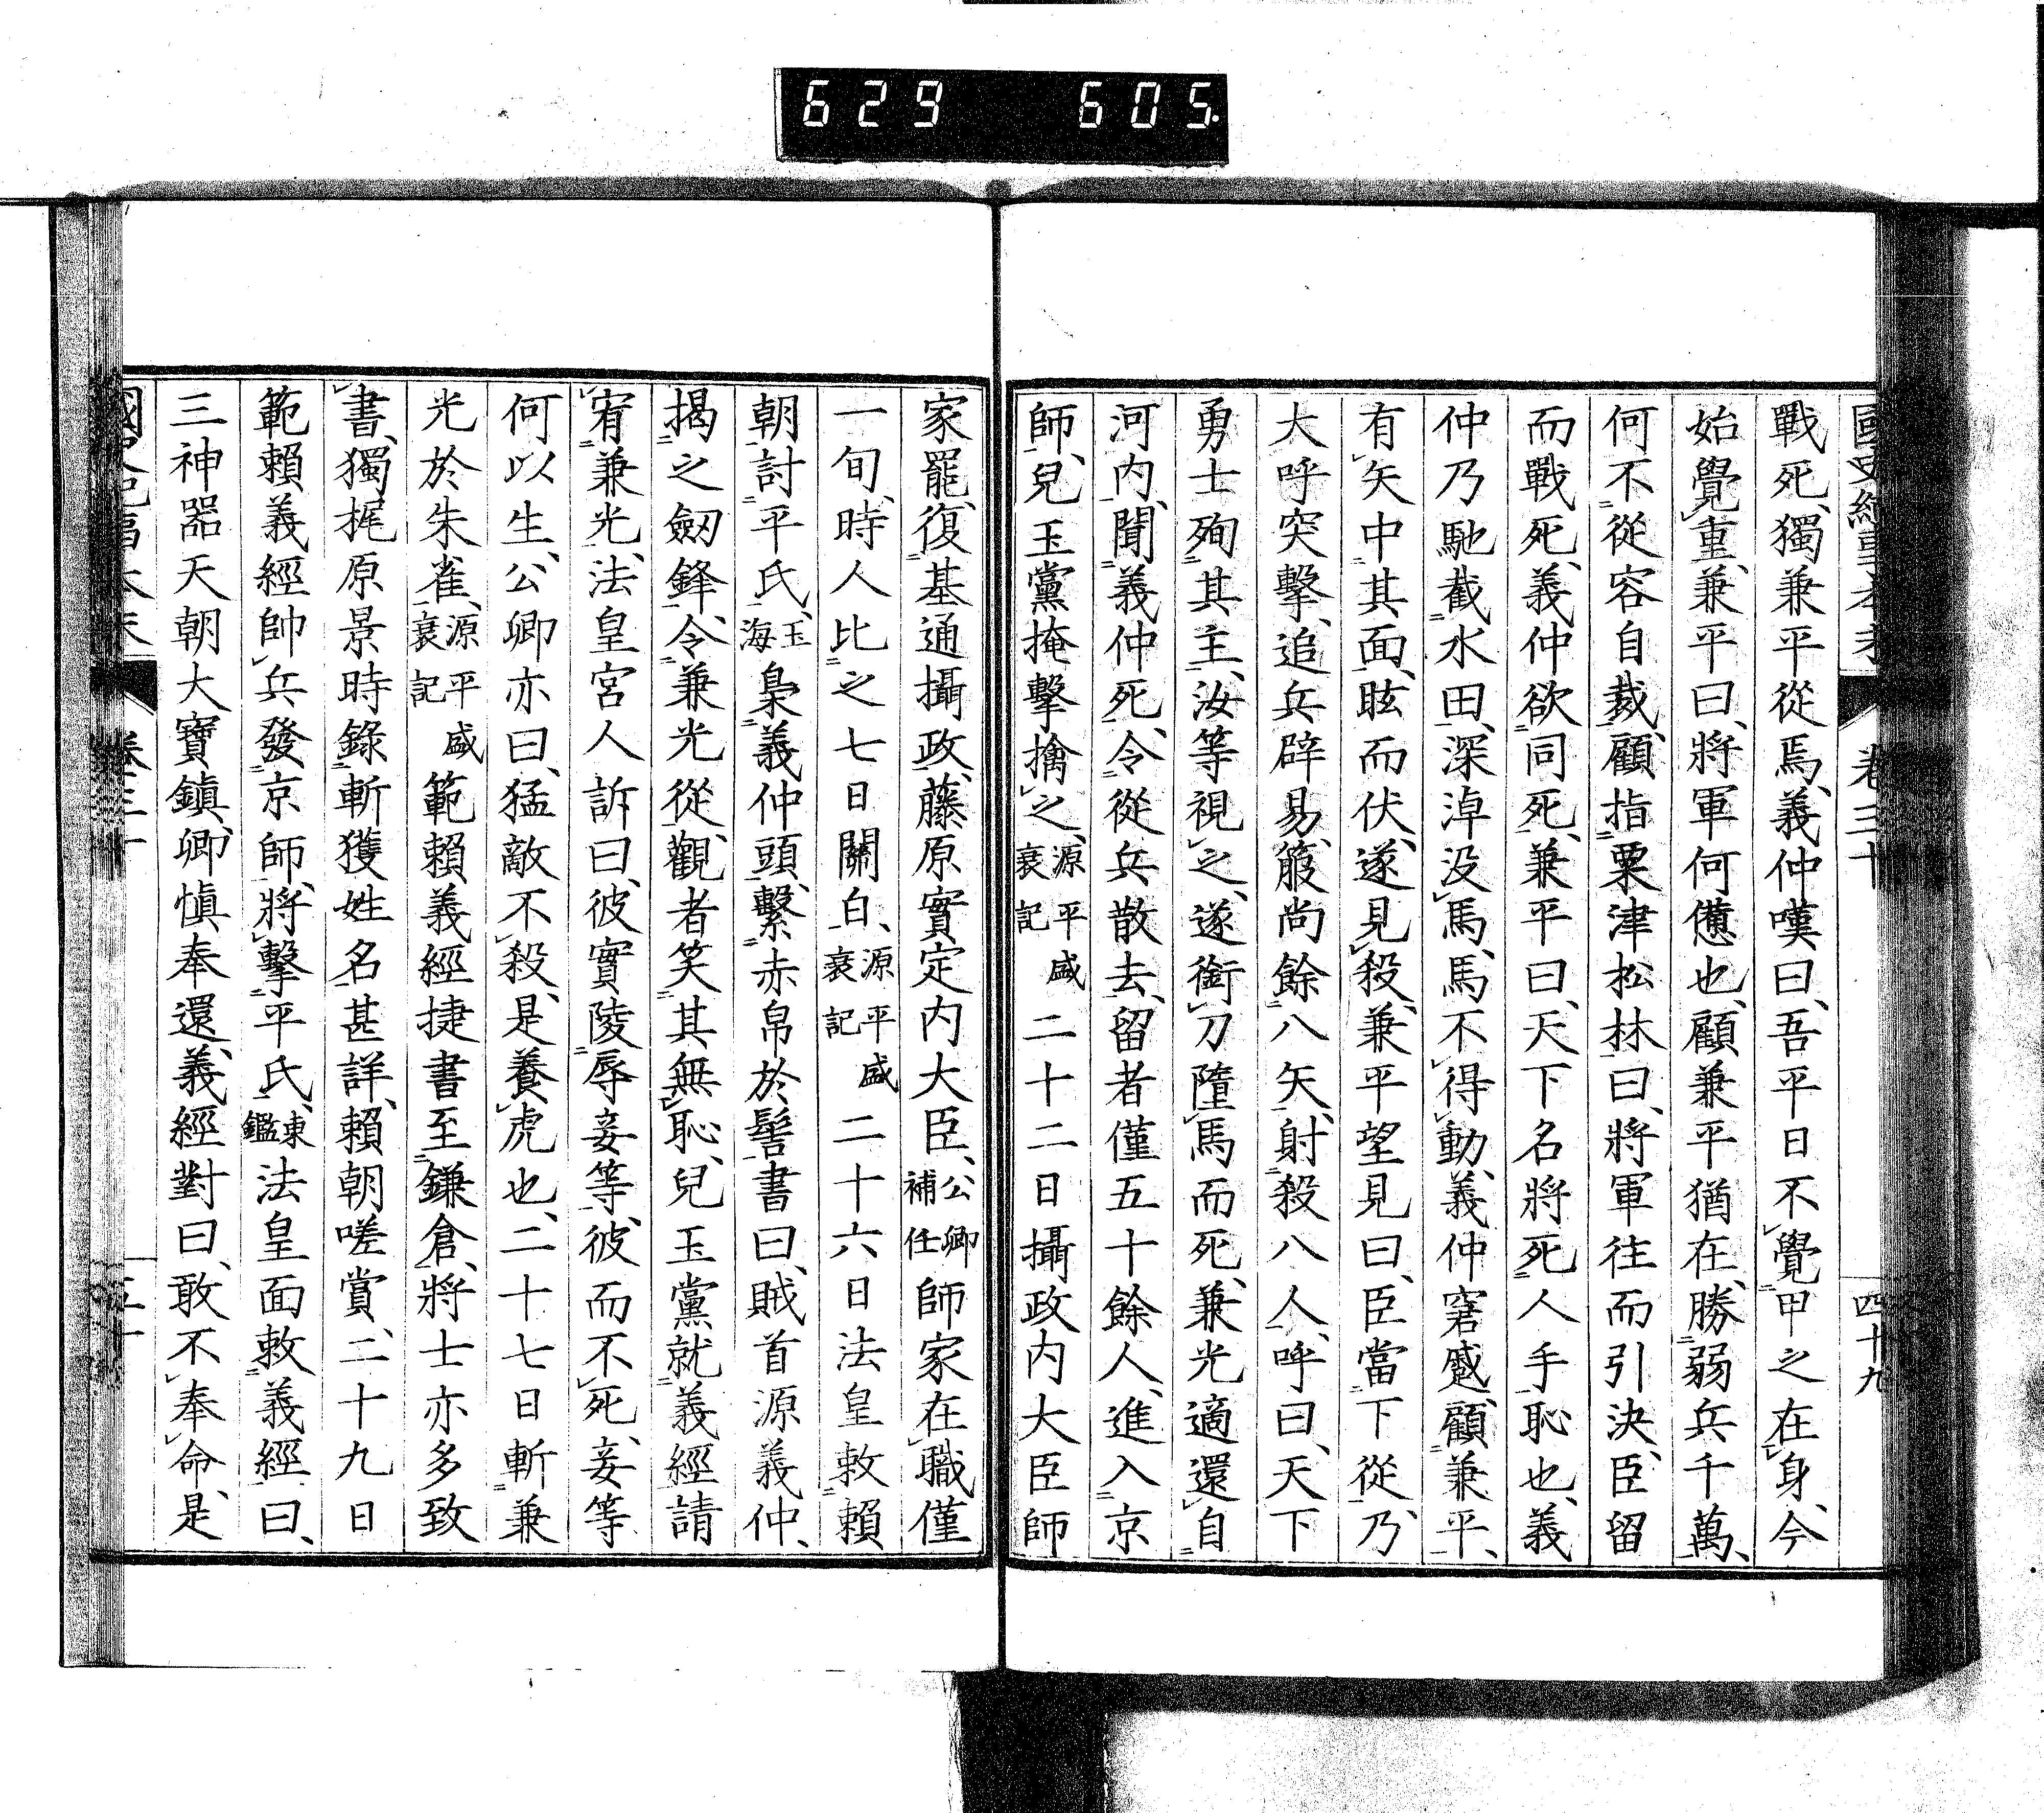 629 605.
國史紀事本末 卷三十 四十九
戰死、獨兼平從焉、義仲嘆曰、吾平日不覺甲之在身、今
始覺重、兼平曰、將軍何憊也、顧兼平猶在、勝弱兵千萬、
何不從容自裁、顧指粟津松林曰、將軍往而引決、臣留
而戰死、義仲欲同死、兼平曰、天下名將死人手恥也、義
仲乃馳截水田、深淖没馬、馬不得動、義仲窘蹙、顧兼平、
有矢中其面、眩而伏、遂見殺、兼平望見曰、臣當下從、乃
大呼突擊、追兵辟易、箙尚餘八矢、射殺八人、呼曰、天下
勇士殉其主、汝等視之、遂銜刀墮馬而死、兼光適還自
河内、聞義仲死、令從兵散去、留者僅五十餘人、進入京
師、兒玉黨掩擊擒之、源平盛衰記二十二日攝政内大臣師
家罷、復基通攝政、藤原實定内大臣、公卿補任師家在職僅
一旬、時人比之七日關白、源平盛衰記二十六日法皇敕賴
朝討平氏、玉海梟義仲頭、繫赤帛於髻書曰、賊首源義仲、
揭之劔鋒、令兼光從、觀者笑其無恥、兒玉黨就義經請
宥兼光、法皇宮人訴曰、彼實陵辱妾等、彼而不死、妾等
何以生、公卿亦曰、猛敵不殺、是養虎也、二十七日斬兼
光於朱雀、源平盛衰記範賴義經捷書至鎌倉、將士亦多致
書、獨梶原景時錄斬獲姓名甚詳、賴朝嗟賞、二十九日
範賴義經帥兵發京師、將擊平氏、東鑑法皇面敕義經曰、
三神器天朝大寶鎮、卿慎奉還、義經對曰、敢不奉命、是
國史紀事本末 卷三十 五十